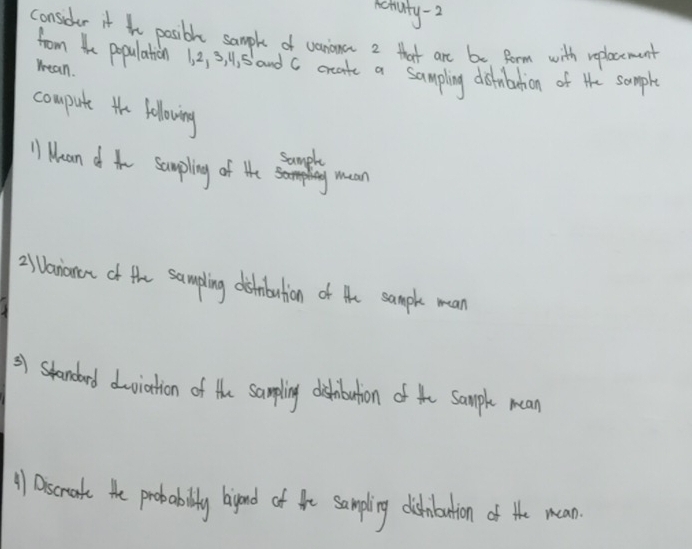 Activity-2
Consider it the posible sample of variance 2 that are be form with replacement
from the population 1,2,3,4,5 and 6 create a sampling distribution of the sample
mean.
compute the following
1) Mean of the sampling of the sample mean
2) Variance of the sampling distribution of the sample mean
3) Standard deviation of the sampling distribution of the sample mean
4) Discreate the probability of the sampling distribution of the mean.